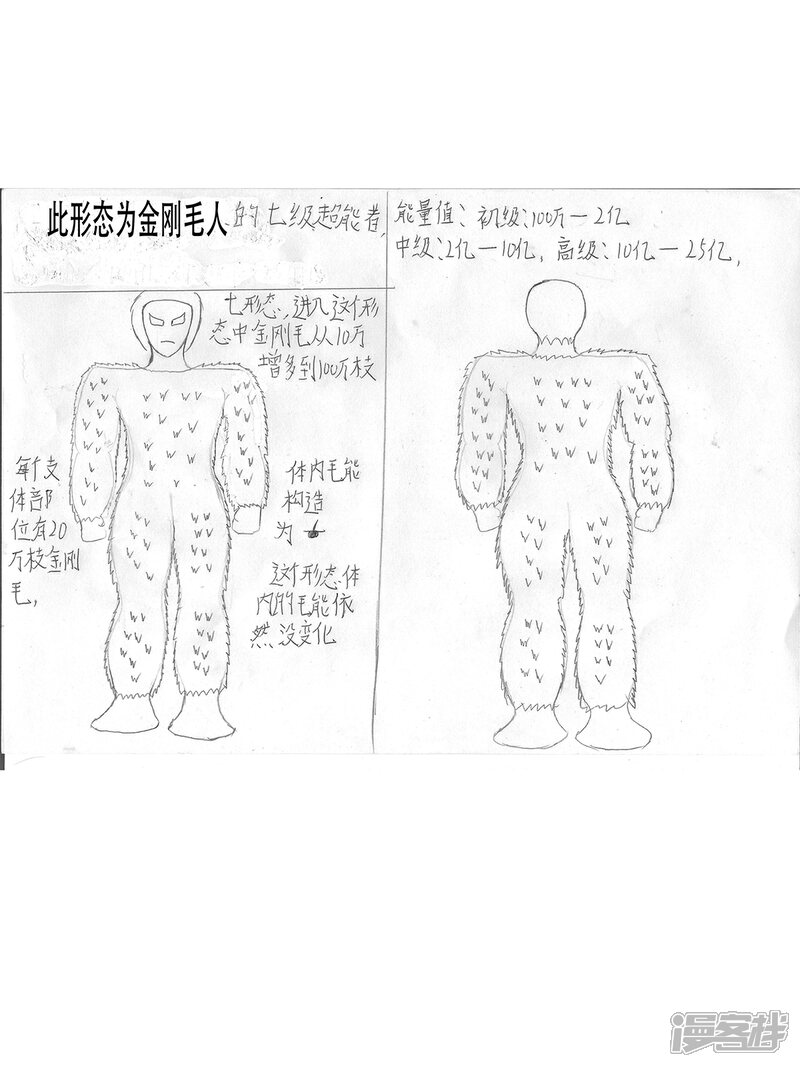 此形态为金刚毛人的七级超能者,
七形态,进入这个形
态中金刚毛从10万
增多到100万枝
每个支
体部
位有20
万枝金刚
毛,
体内毛能
构造
为
这个形态体
内的毛能依
然没变化
能量值:初级:100万—2亿
中级:2亿—10亿,高级:10亿—25亿,
漫客栈